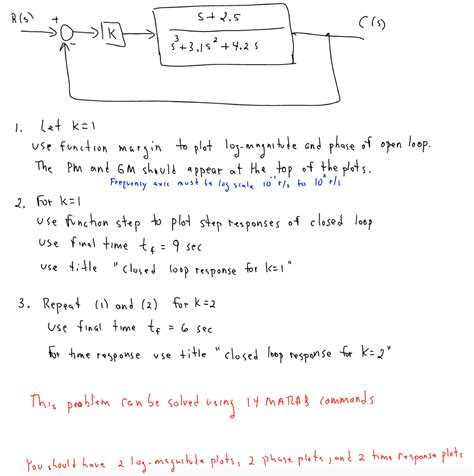 R(s) + - K s + 2.5 C(s)
s³ + 3.1s² + 4.2s
1. Let k=1
use function margin to plot log-magnitude and phase of open loop.
The PM and GM should appear at the top of the plots.
Frequency axis must be log scale 10⁻¹ r/s to 10² r/s
2. For k=1
use function step to plot step responses of closed loop
use final time t_f = 9 sec
use title "closed loop response for k=1"
3. Repeat (1) and (2) for k=2
Use final time t_f = 6 sec
For time response use title "closed loop response for k=2"
This problem can be solved using 14 MATLAB commands
You should have 2 log-magnitude plots, 2 phase plots, and 2 time response plots